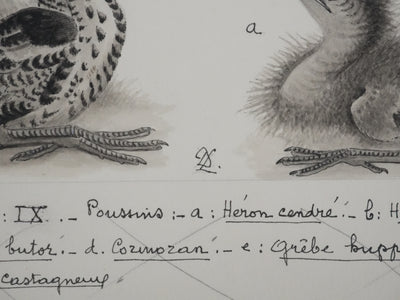 a
: IX. - Poussins :- a : Héron cendré. - b : H
butor. - d. Cormoran. - e : Grêbe hupp
castagneux